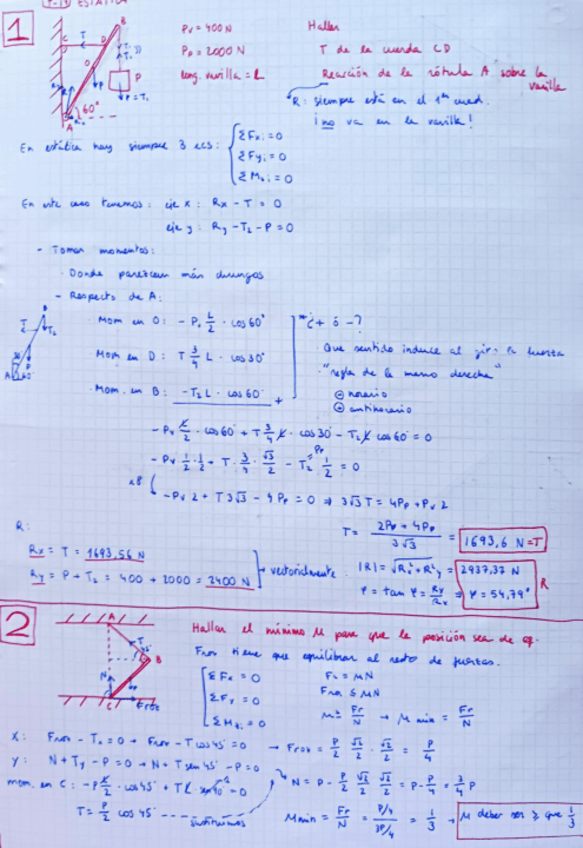 ESTÁTICA
1
Pv = 400N
Pp = 2000 N
long. varilla = L
Hallar
T de la cuerda CD
Reacción de la rótula A sobre la varilla
R: siempre está en el 1er cuad.
¡no va en la varilla!
B
C
T
D
O
P
P=T₂
60°
A
En estática hay siempre 3 ecs:
ΣFxi = 0
ΣFyi = 0
ΣMzi = 0
En este caso tenemos: eje x: Rx - T = 0
eje y: Ry - T₂ - P = 0
- Tomar momentos:
· Donde parezcan más chungos
- Respecto de A:
B
T
T₂
A
· Mom en O: - P. L/2 · cos 60°
· Mom en D: T 3/4 L · cos 30°
· Mom. en B: -T₂ L · cos 60° +
*¿+ ó -?
· Que sentido induce al gir. la fuerza
· "regla de la mano derecha"
⊖ horario
⊕ antihorario
- Pv L/2 · cos 60 + T 3/4 L · cos 30 - T₂ L cos 60 = 0
- Pv 1/2 · 1/2 + T · 3/4 · √3/2 - T₂ · 1/2 = 0
Pp
x8
- Pv 2 + T 3√3 - 4 Pp = 0 ⇒ 3√3 T = 4Pp + Pv 2
T = 2Pp + 4Pp / 3√3 = 1693,6 N = T
R:
Rx = T = 1693,56 N
Ry = P + T₂ = 400 + 2000 = 2400 N
vectorialmente
|R| = √R²x + R²y = 2937,37 N
φ = tan φ = Ry/Rx ⇒ φ = 54,79°
R
2
A
T
45°
B
N
P
C
Froz
Hallar el mínimo μ para que la posición sea de eq.
Froz tiene que equilibrar al resto de fuerzas.
ΣFx = 0
ΣFy = 0
ΣMzi = 0
Fr = μN
Froz ≤ μN
μ ≥ Fr/N → μ min = Fr/N
X: Froz - Tx = 0 → Froz - T cos 45° = 0 → Froz = P/2 √2/2 · √2/2 = P/4
y: N + Ty - P = 0 → N + T sen 45° - P = 0
N = P - P/2 √2/2 √2/2 = P - P/4 = 3/4 P
mom. en C: - P L/2 · cos 45° + T L · sen 90° = 0
T = P/2 cos 45° ---- sustituimos
μ min = Fr/N = P/4 / 3P/4 = 1/3 → μ deber ser ≥ que 1/3